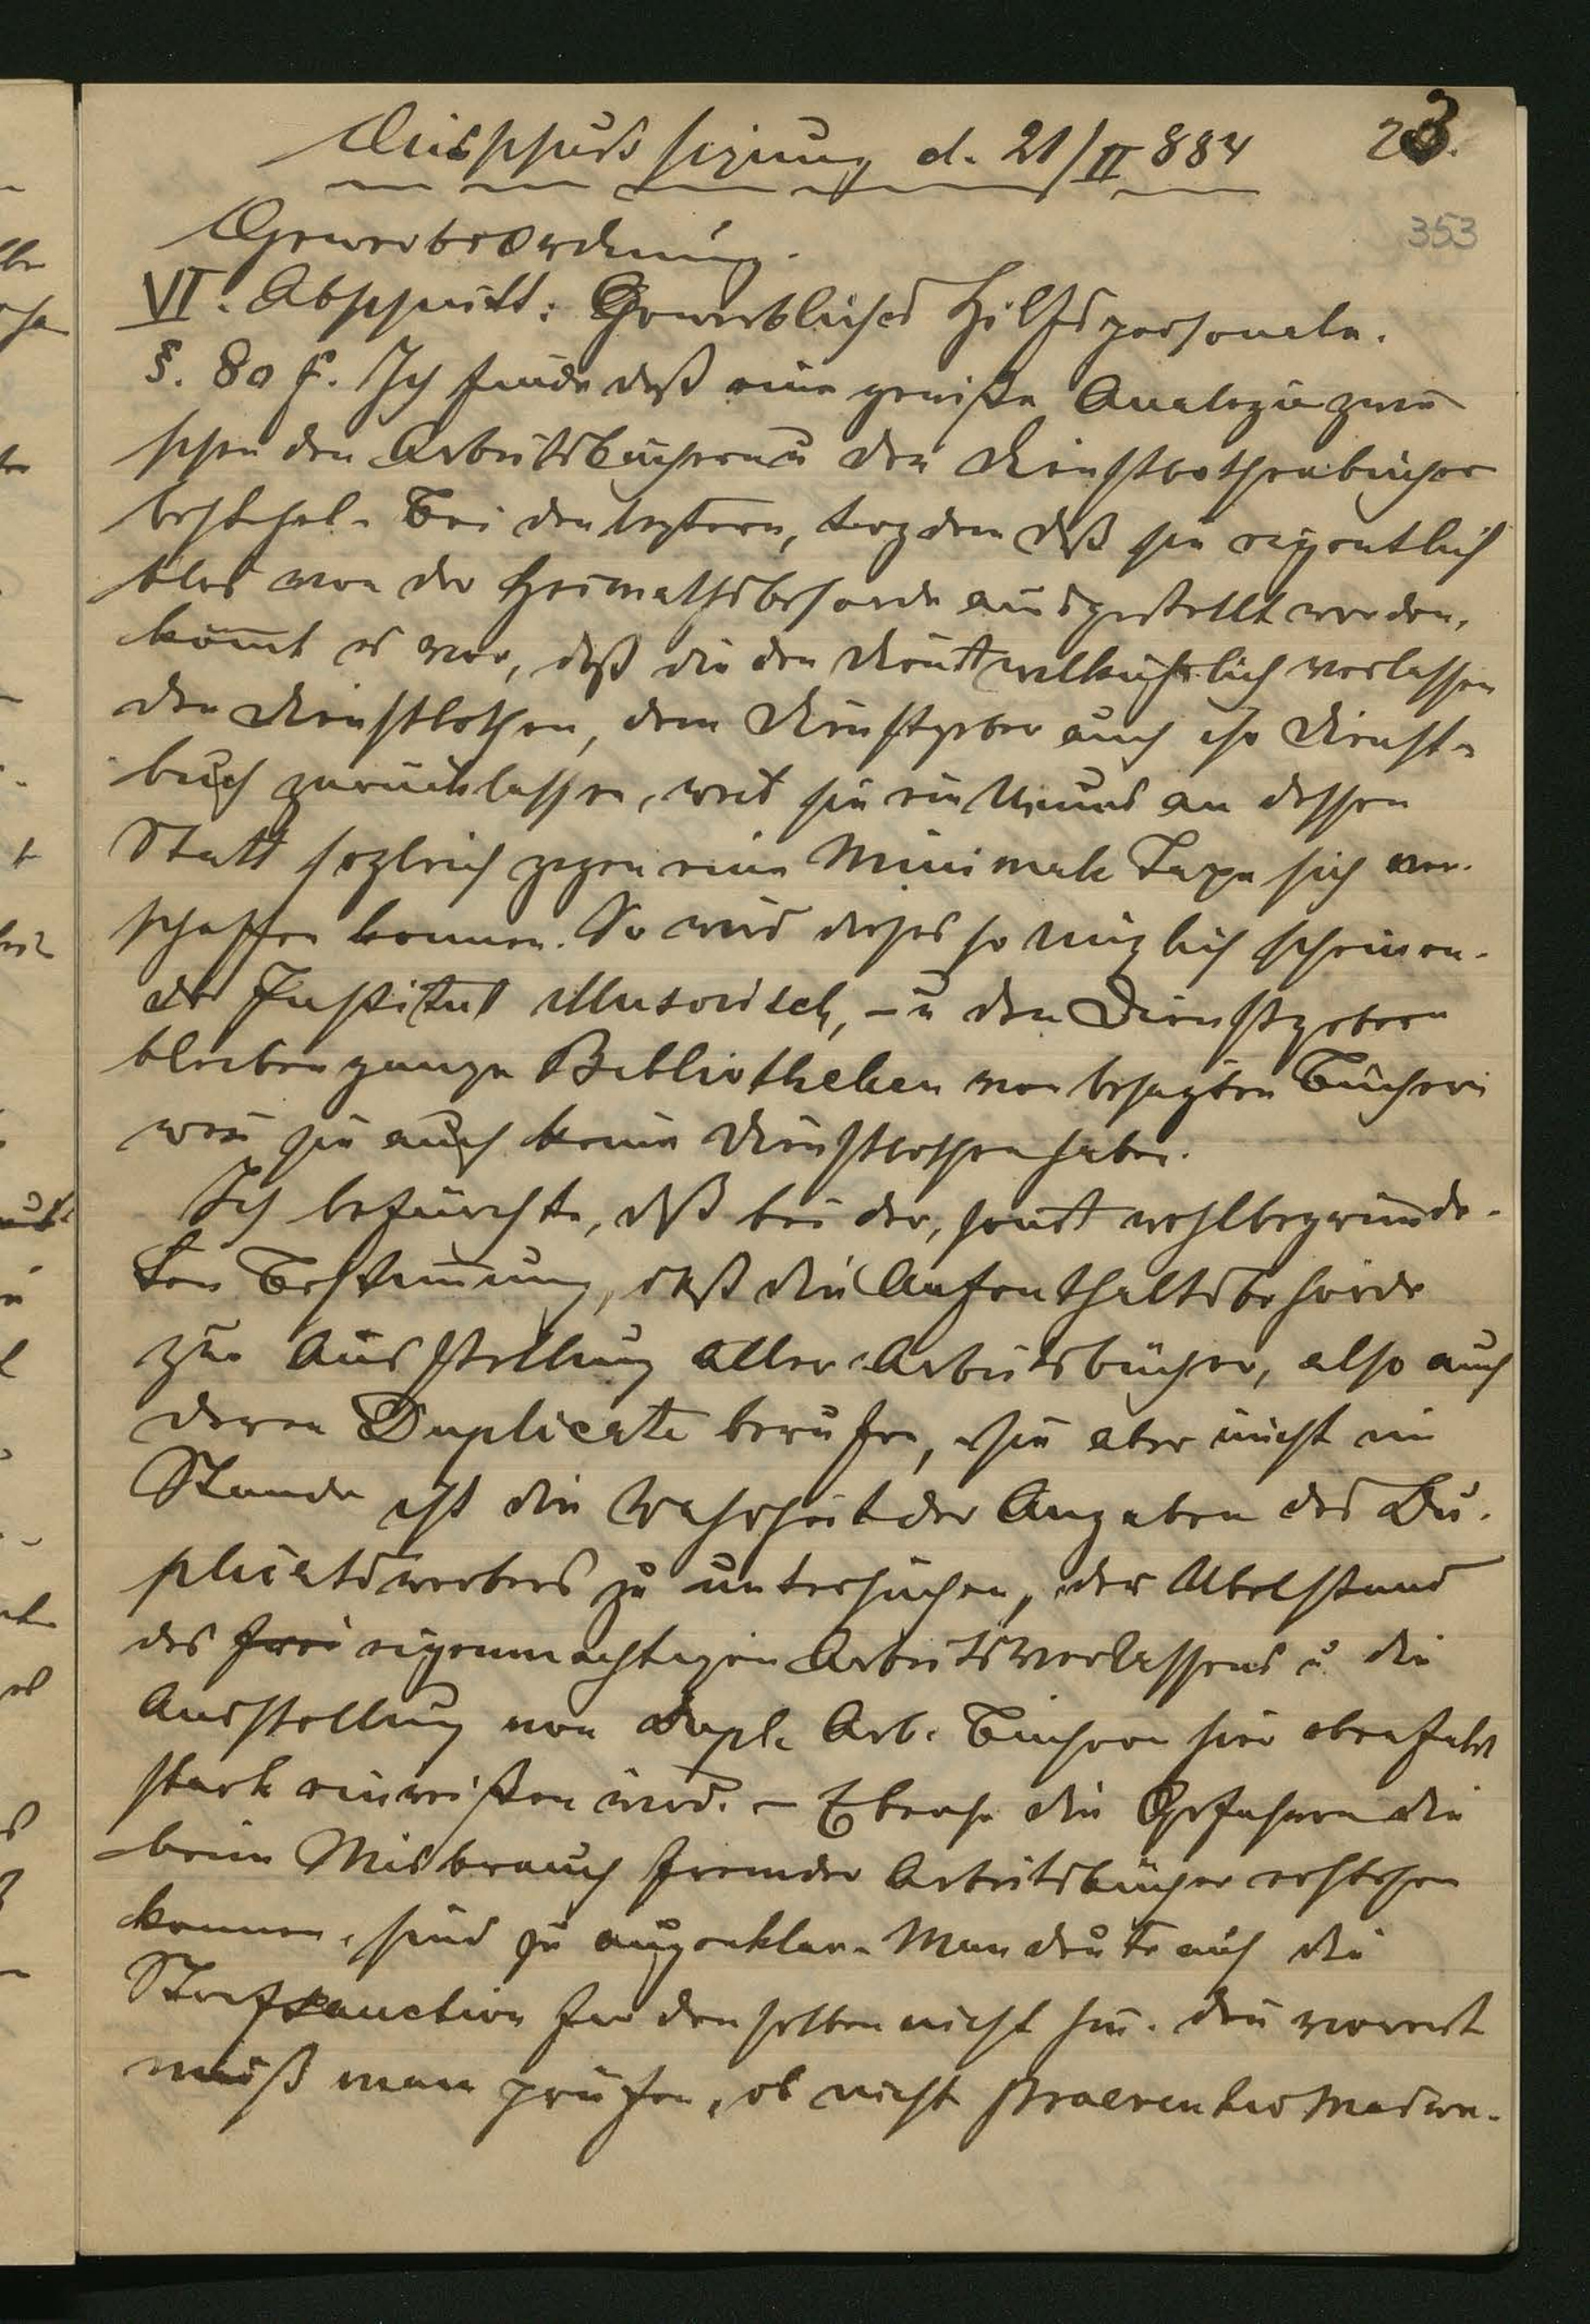 Ausschuss sizung d. 21/II 884 23.
353
Gewerbeordnung.
VI. Abschnitt: Gewerbliches Hilfspersonale.
§. 80 f. Ich finde daß eine gewiße Analogie zwi
schen den Arbeitsbüchern u den Dienstbothenbücher
bestehe. Bei den leztern, trozdem daß sie eigentlich
blos von der Heimathsbehorde ausgestellt werden,
kom̄t es vor, daß die den Dienst willkührlich verlassen
den Dienstbothen, dem Dienstgeber auch ihr Dienst-
buch zurücklassen, weil sie ein Neues an dessen
Statt sogleich gegen eine Minimale Taxe sich ver-
schaffen konnen. So wird dieses so nüzlich scheinen-
de Institut illusorisch, – u den Dienstgebern
bleiben ganze Bibliotheken von besagten Büchern
wen̄ sie auch keine Dienstbothen haben.
Ich befürchte, daß bei der, sonst wohlbegründe-
ten Bestim̄ung, daß die Aufenthaltsbehörde
zur Ausstellung aller Arbeitsbücher, also auch
deren Duplicate berufen, sie aber nicht im
Stande ist die Wahrheit der Angaben des Du-
plicatswerbers zu untersuchen, der Ubelstand
des frei eigenmachtigen Arbeitsverlassens u die
Ausstellung von Dupl. Arb. Büchern hier ebenfalls
stark einreißen wird. – Ebenso die Gefahren die
beim Misbrauch fremder Arbeitsbücher entstehen
konnen, sind zu augenklar. Man deute auf die
Strafsanction fur denselben nicht hin. den̄ vorerst
muß man prüfen, ob nicht praeventiv Masre-